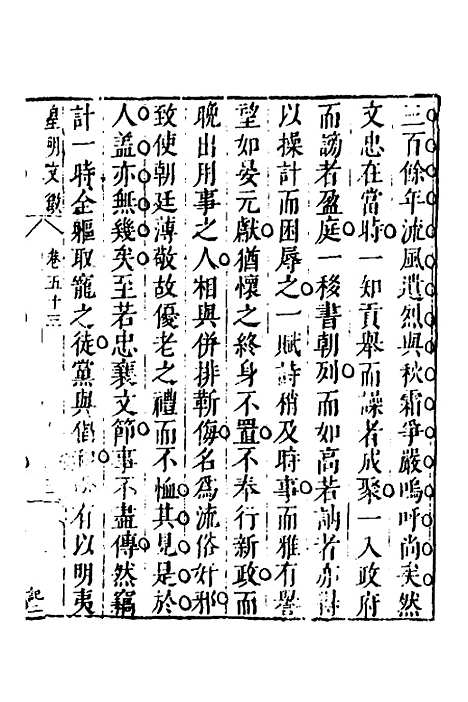 三百餘年流風遺烈與秋霜爭嚴嗚呼尚矣然
文忠在當時一知貢舉而譟者成聚一入政府
而謗者盈庭一移書朝列而如高若訥者亦得
以操計而困辱之一賦詩稍及時事而雅有譽
望如晏元獻猶懷之終身不置不奉行新政而
晚出用事之人相與併排靳傷名為流俗奸邪
致使朝廷薄敬故優老之禮而不恤其見是於
人蓋亦無幾矣至若忠襄文節事不盡傳然竊
計一時全軀取寵之徒黨與倡和有以明夷
皇明文徵
卷五十三
記二